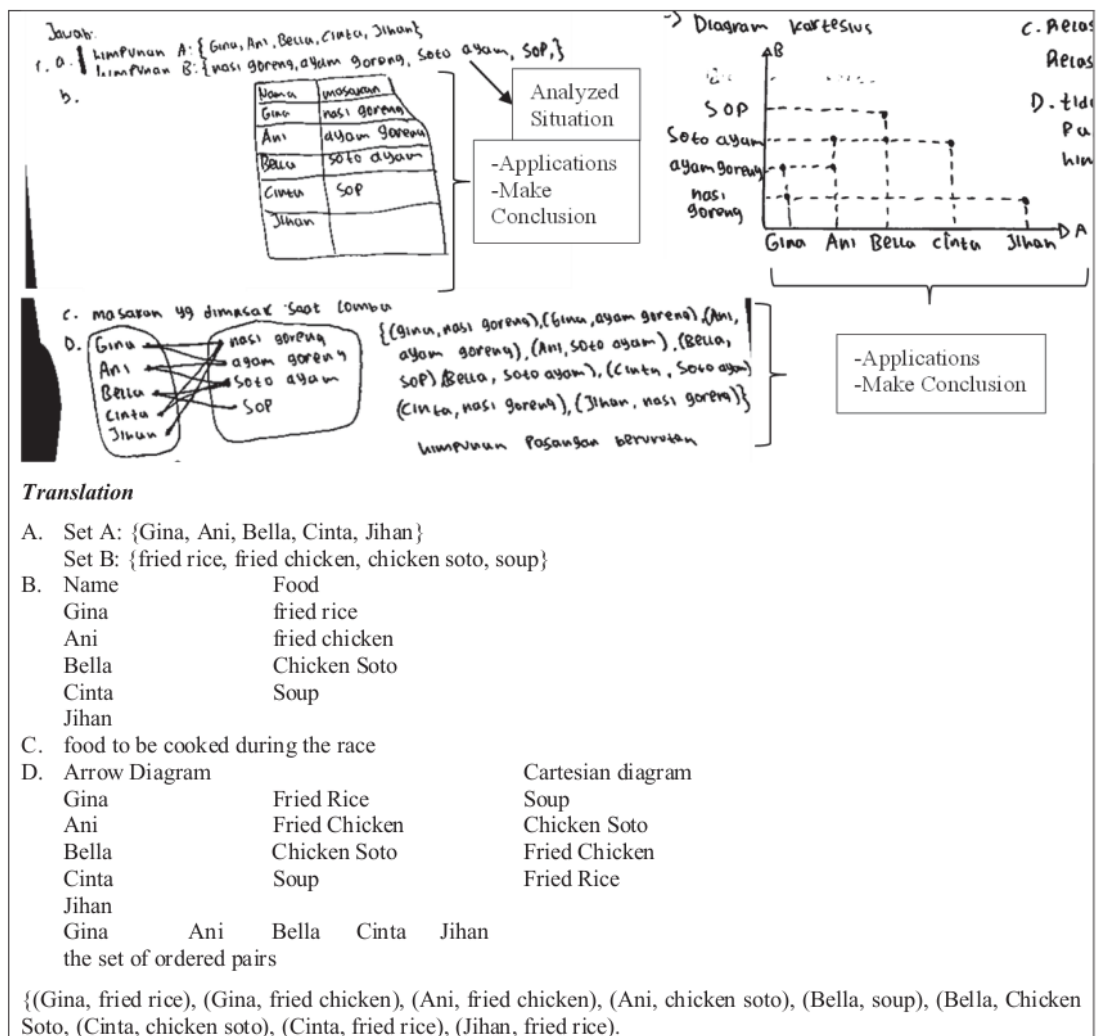 Jawab:
1. a. himpunan A: {Gina, Ani, Bella, Cinta, Jihan}
himpunan B: {nasi goreng, ayam goreng, Soto ayam, SOP,}
b.
Nama masakan
Gina nasi goreng
Ani ayam goreng
Bella soto ayam
Cinta SOP
Jihan
Analyzed
Situation
-Applications
-Make
Conclusion
-> Diagram kartesius
B
SOP
Soto ayam
ayam goreng
nasi
goreng
Gina Ani Bella Cinta Jihan A
C. Relas
Relas
D. tida
Pa
him
C. masakan yg dimasak saat lomba
D. Gina nasi goreng
Ani ayam goreng
Bella Soto ayam
Cinta SOP
Jihan
{(Gina, nasi goreng), (Gina, ayam goreng), (Ani,
ayam goreng), (Ani, soto ayam), (Bella,
SOP) (Bella, soto ayam), (Cinta, Soto ayam)
(Cinta, nasi goreng), (Jihan, nasi goreng)}
himpunan Pasangan berurutan
-Applications
-Make Conclusion
Translation
A. Set A: {Gina, Ani, Bella, Cinta, Jihan}
Set B: {fried rice, fried chicken, chicken soto, soup}
B. Name Food
Gina fried rice
Ani fried chicken
Bella Chicken Soto
Cinta Soup
Jihan
C. food to be cooked during the race
D. Arrow Diagram Cartesian diagram
Gina Fried Rice Soup
Ani Fried Chicken Chicken Soto
Bella Chicken Soto Fried Chicken
Cinta Soup Fried Rice
Jihan
Gina Ani Bella Cinta Jihan
the set of ordered pairs
{(Gina, fried rice), (Gina, fried chicken), (Ani, fried chicken), (Ani, chicken soto), (Bella, soup), (Bella, Chicken
Soto, (Cinta, chicken soto), (Cinta, fried rice), (Jihan, fried rice).